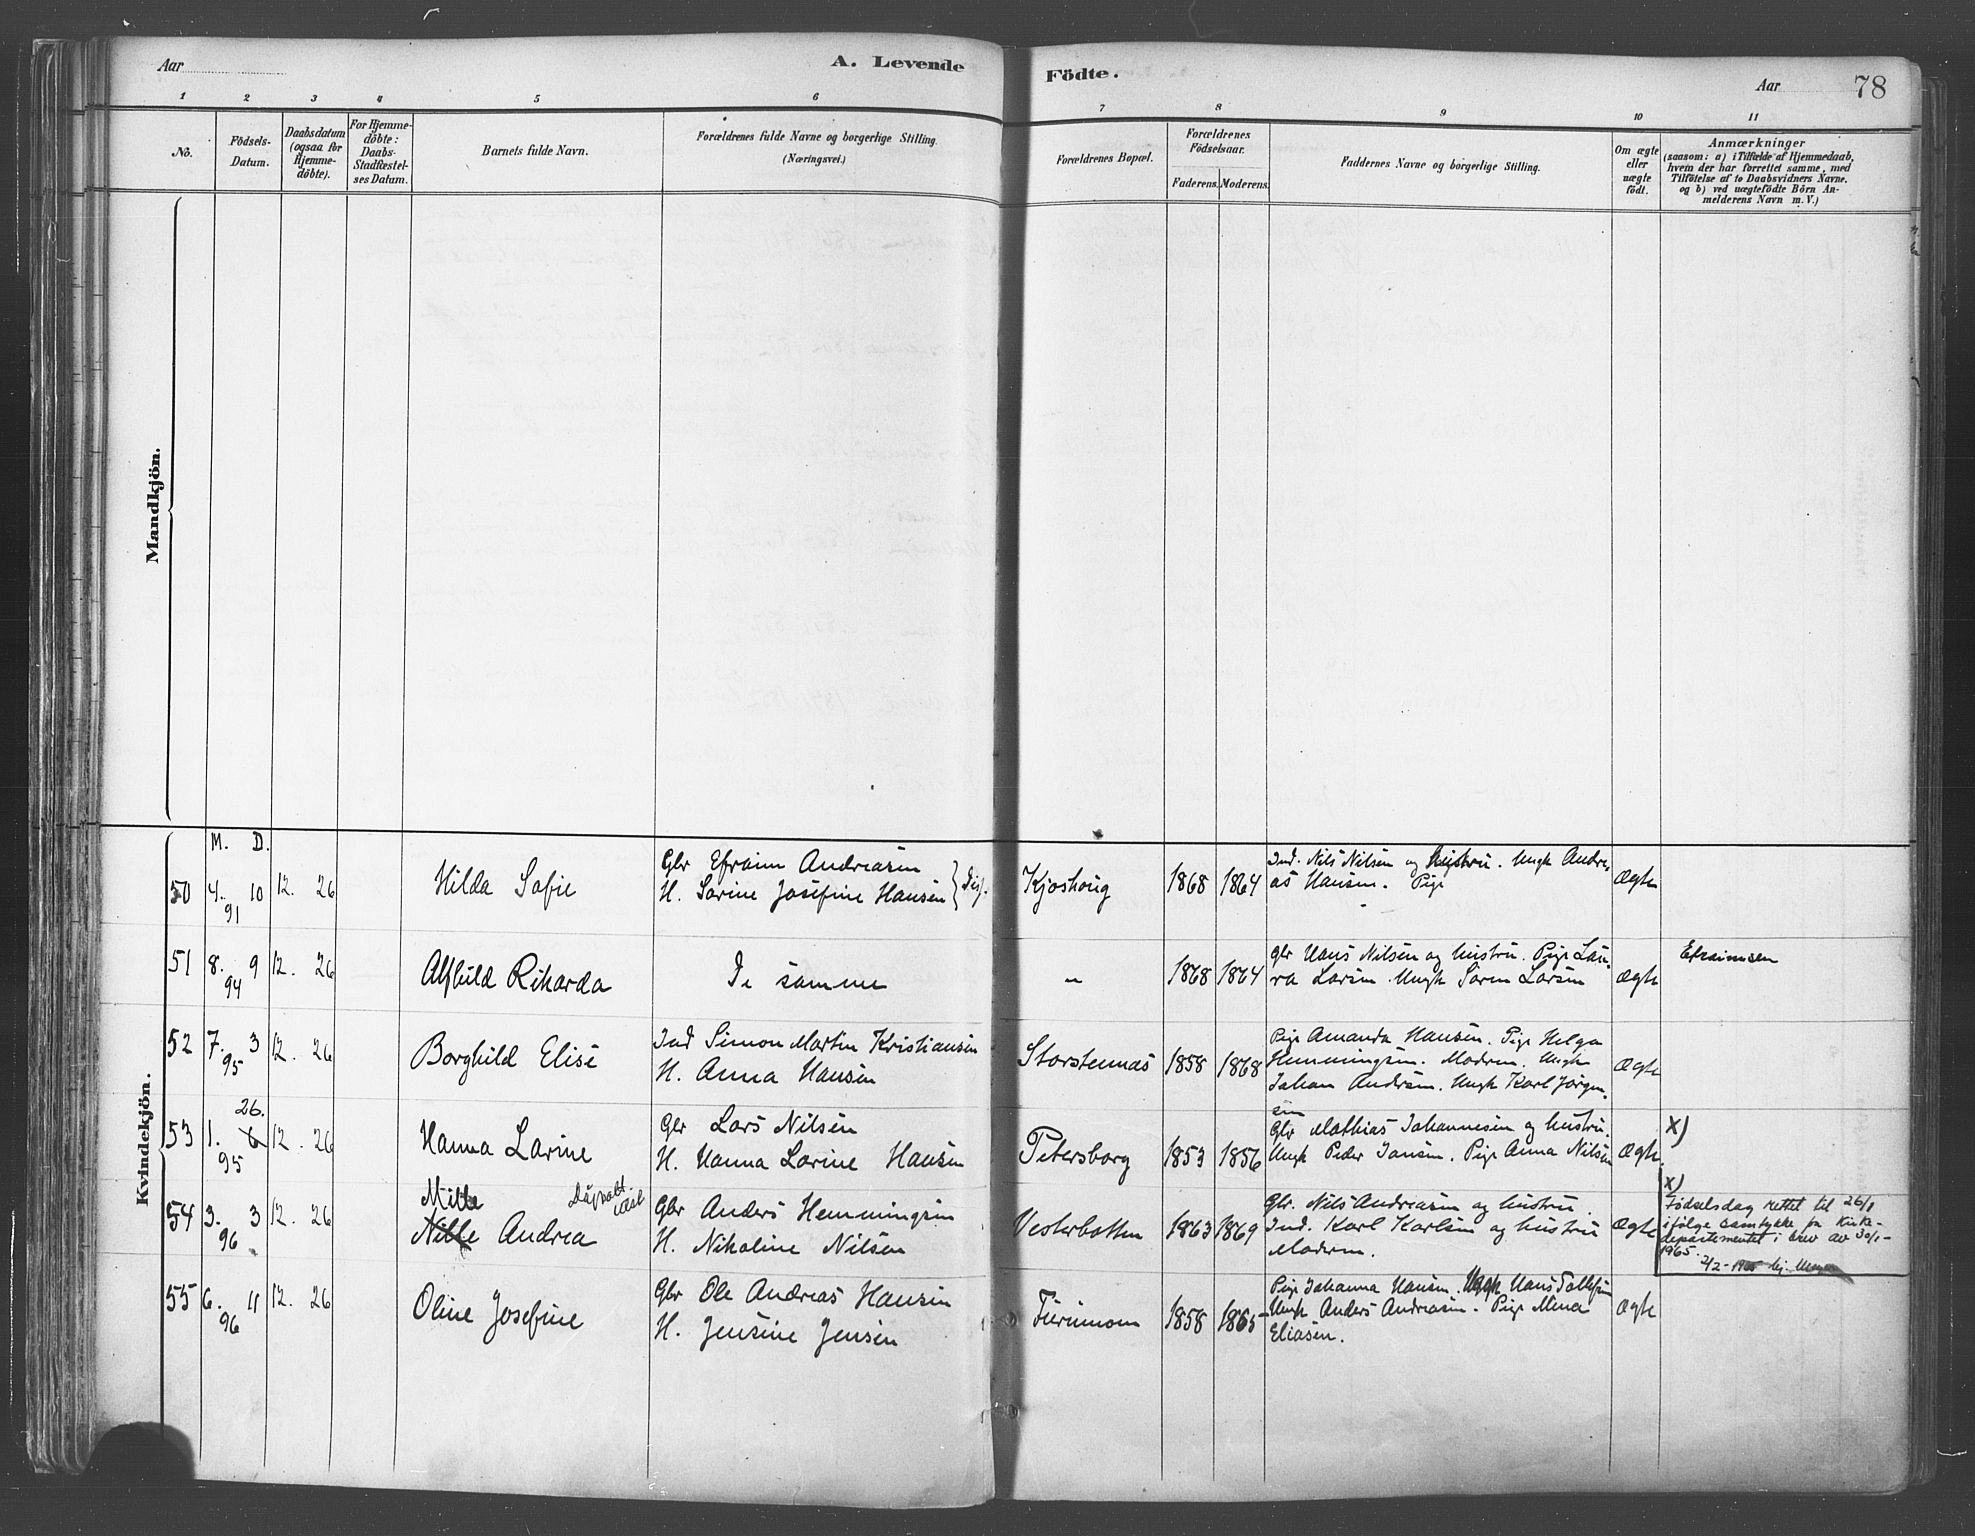 Aar
A. Levende
Födte.
Aar
78
1 2 3 4 5 6 7 8 9 10 11
No.
Födsels-
Datum.
Daabsdatum
(ogsaa for
Hjemme-
döbte).
For Hjemme-
döbte:
Daabs-
Stadfæstel-
ses Datum.
Barnets fulde Navn.
Forældrenes fulde Navne og borgerlige Stilling.
(Næringsvei.)
Forældrenes Bopæl.
Forældrenes
Födselsaar.
Faderens. Moderens.
Faddernes Navne og borgerlige Stilling.
Om ægte
eller
uægte
födt.
Anmærkninger
(saasom: a) i Tilfælde af Hjemmedaab,
hvem der har forrettet samme, med
Tilföielse af to Daabsvidners Navne,
og b) ved uægtefödte Börn An-
melderens Navn m. V.)
Mandkjön.
Kvindekjön.
M. D.
50 4. 10 12. 26
91
Hilda Sofie
Gbr Efraim Andreasen
H. Sarine Josefine Hansen } Dis.
Kjoshoug
1868 1864
Ind. Nils Nilsen og hustru. Ungk Andre-
as Hansen. Pige
Ægte
51 8. 9 12. 26
94
Alfhild Rikarda
De samme
"
1868 1864
Gbr Hans Nilsen og hustru. Pige Lau-
ra Larsen. Ungk Søren Larsen
Ægte
Efraimsen
52 7. 3 12. 26
95
Borghild Elise
Ind Simon Martin Kristiansen
H. Anna Hansen
Storstennæs
1858 1868
Pige Amanda Hansen. Pige Helga
Hemmingsen. Modren. Ungk
Johan Andersen. Ungk Karl Jørgen-
sen
Ægte
26.
53 1. 6 12. 26
95
Hanna Larine
Gbr Lars Nilsen
H. Hanna Larine Hansen
Petersborg
1853 1856
Gbr Mathias Johannesen og hustru.
Ungk Peder Jansen. Pige Anna Nilsen
Ægte
x)
54 3. 3 12. 26
96
Mille
Nille Andrea
Dåpsatt.
Gbr Anders Hemmingsen
H. Nikoline Nilsen
Vesterbotten
1863 1869
Gbr. Nils Andreasen og hustru.
Ind. Karl Karlsen og hustru
Modren.
Ægte
x)
Fødselsdag rettet til 26/1
ifølge samtykke fra Kirke-
departementet i brev av 30/1-
1965.
2/2-1965
55 6. 11 12. 26
96
Oline Josefine
Gbr Ole Andreas Hansen
H. Jensine Jensen
1858 1865
Pige Johanna Hansen. Ungk Hans Tollefsen
Ungk Anders Andreasen. Pige Mina
Eliasen.
Ægte